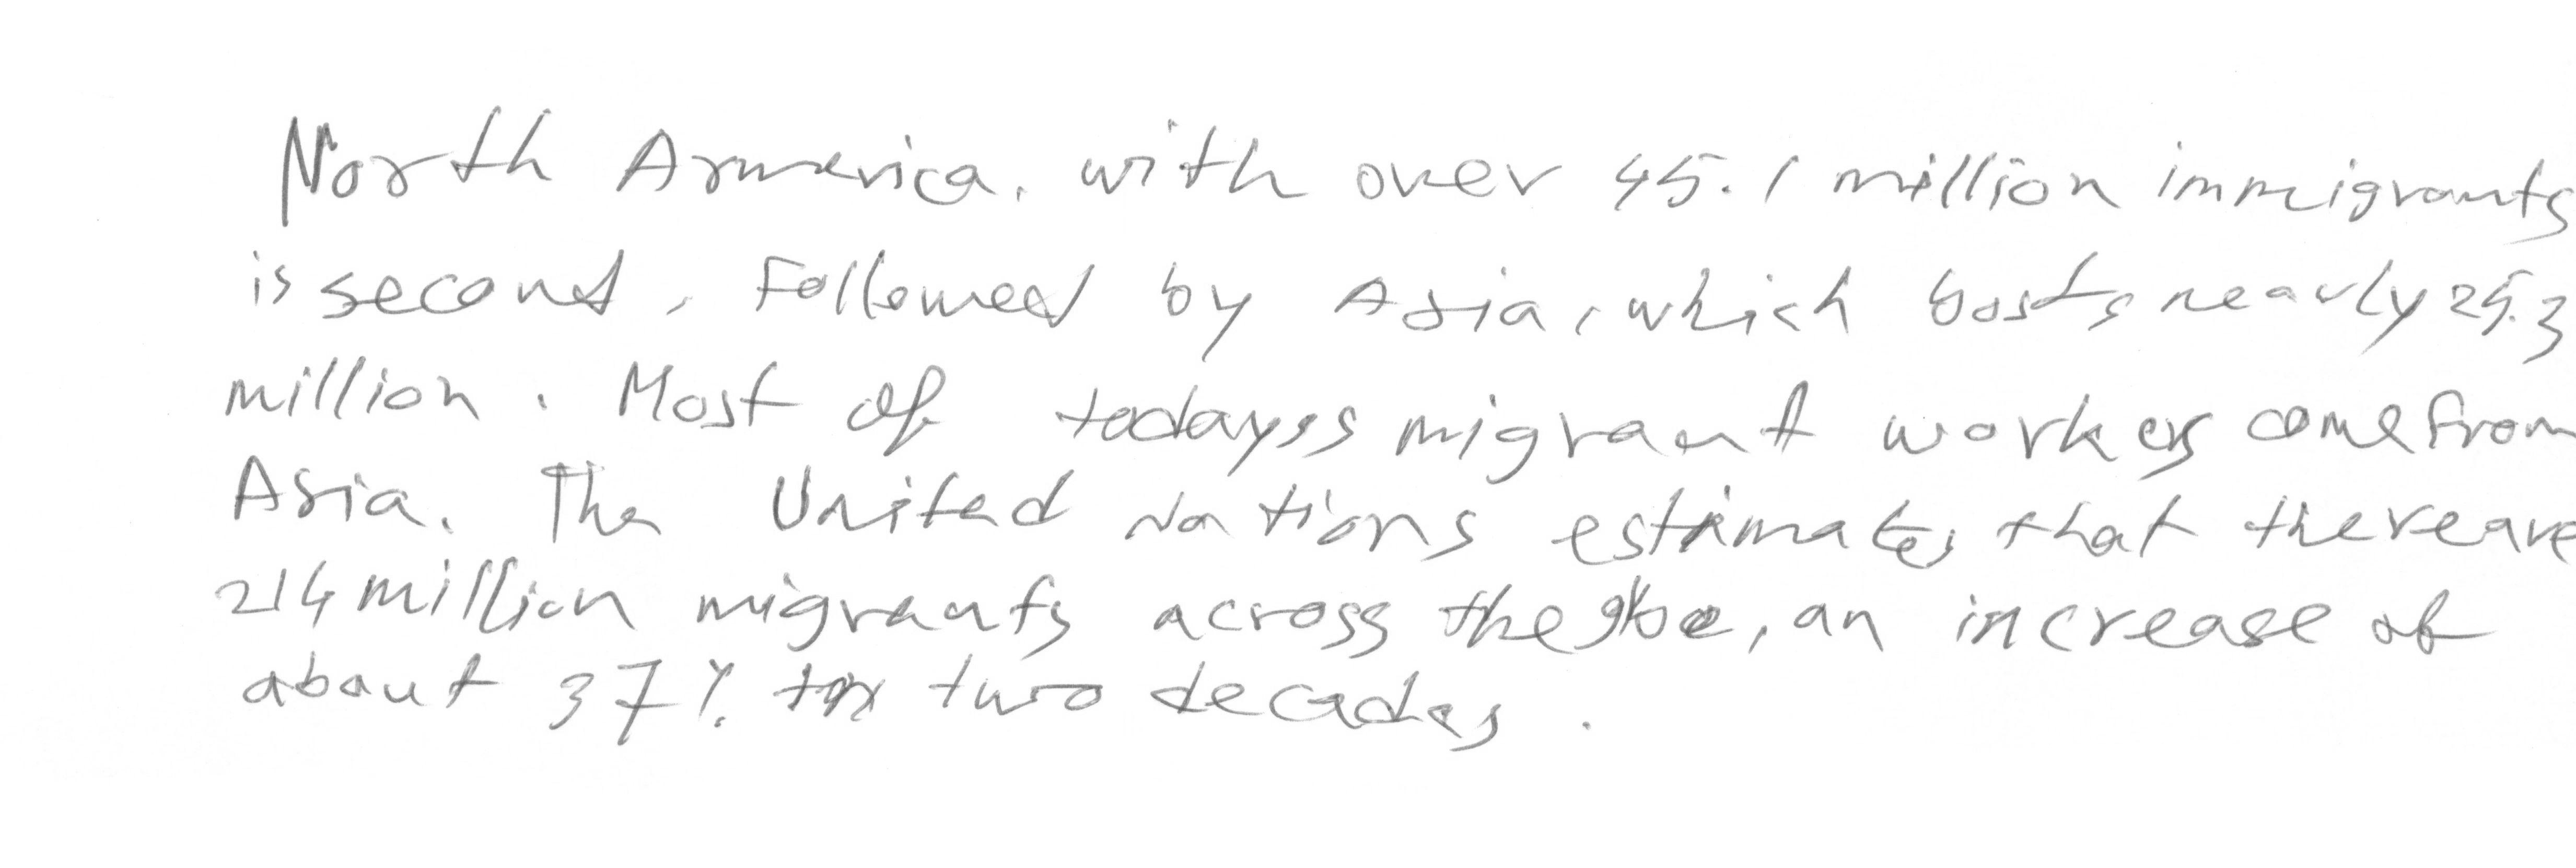 North Armerica, with over 45.1 million immigrants
is second, Followed by Asia, which bosts nearly 25.3
million. Most of todayss migrant workers come from
Asia. The United Nations estimates that there are
214 million migrants across the globe, an increase of
about 37% two decades.